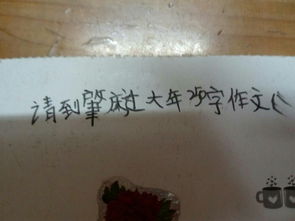 请到肇庆过大年250字作文(